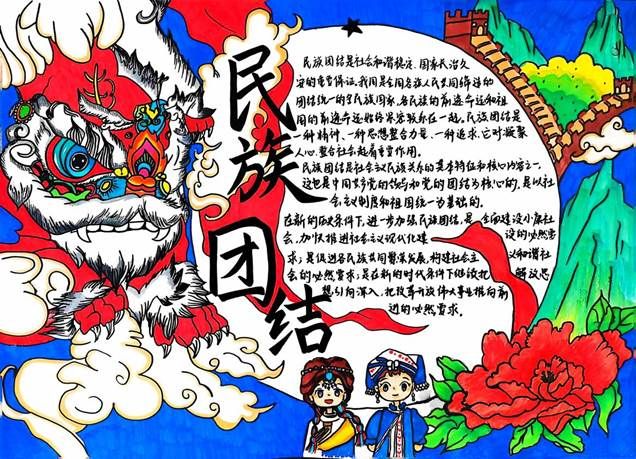 民族团结
民族团结是社会和谐稳定、国家长治久
安的重要保证。我国是全国各族人民共同缔造的
团结统一的多民族国家,各民族的前途命运和祖
国的前途命运始终紧紧联系在一起。民族团结是
一种精神、一种思想整合力量、一种追求,它对凝聚
人心、整合社会起着重要作用。
民族团结是社会主义民族关系的基本特征和核心内容之一,
这也是中国共产党的领导和党的团结为核心的,是以社
会主义制度和祖国统一为基础的。
在新的历史条件下,进一步加强民族团结,是全面建设小康社
会、加快推进社会主义现代化建设的必然要
求;是促进各民族共同繁荣发展、构建社会主义和谐社
会的必然要求;是在新的时代条件下继续把解放思
想引向深入,把改革开放伟大事业推向前
进的必然要求。